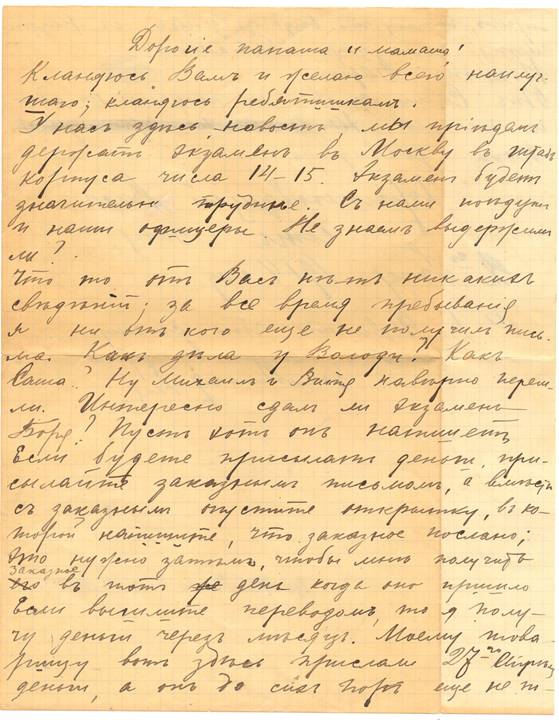 Дорогіе папаша и мамаша!
Кланяюсь Вамъ и желаю всего наилуч-
шаго; кланяюсь ребятишкамъ.
У насъ здѣсь новость, мы пріѣдемъ
держать экзаменъ въ Москву въ штабъ
корпуса числа 14-15. Экзаменъ будетъ
значительно труднѣе. Съ нами поѣдутъ
и наши офицеры. Не знаемъ выдержимъ
ли?
Что то отъ Васъ нѣтъ никакихъ
свѣдѣній; за все время пребыванія
я ни отъ кого еще не получилъ пись-
ма. Какъ дѣла у Володи? Какъ
Саша? Ну Михаилъ и Витя навѣрно переш-
ли. Интересно сдалъ ли экзаменъ
Боря? Пусть хоть онъ напишетъ
Если будете присылать деньги, при-
сылайте заказнымъ письмомъ, а вмѣстѣ
съ заказнымъ опустите открытку, въ ко-
торой напишите, что заказное послано;
это нужно затѣмъ, чтобы мнѣ получить
заказное
въ тотъ же день когда оно пришло
Если вышлите переводомъ, то я полу-
чу деньги черезъ мѣсяцъ. Моему това-
рищу вотъ здѣсь прислали 27-го
деньги, а онъ до сихъ поръ еще не п-